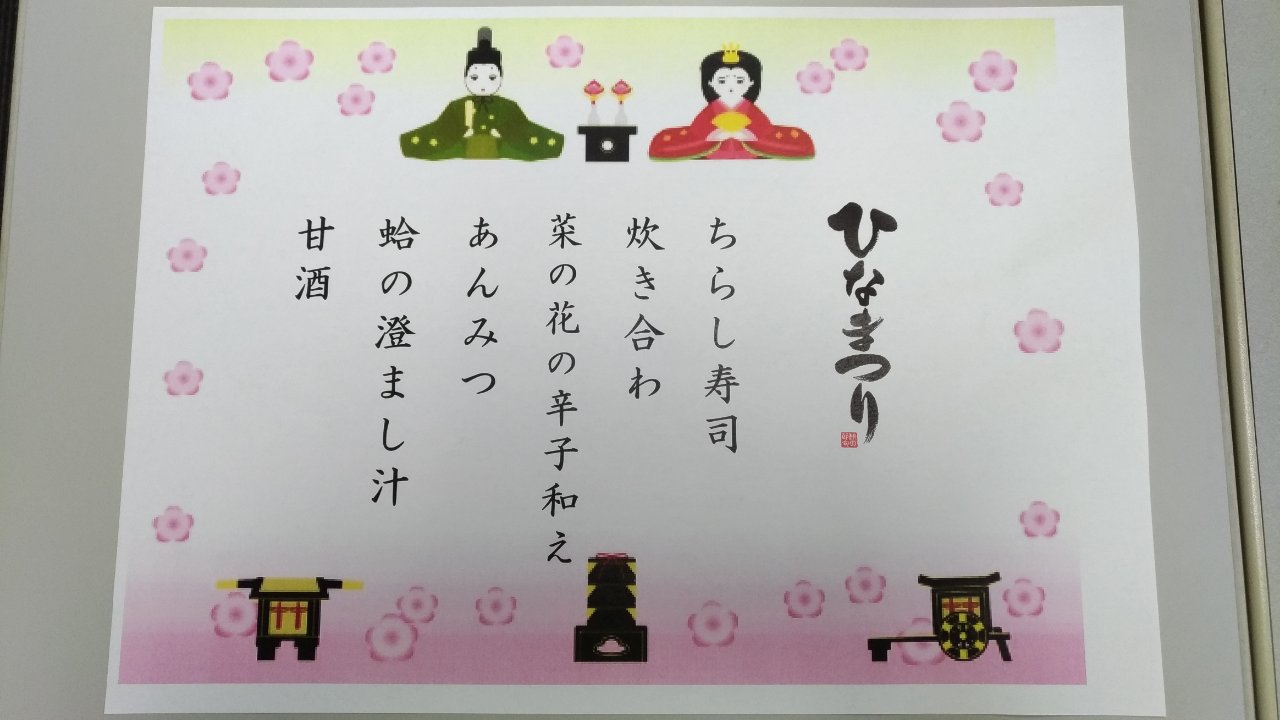 ひなまつり
ちらし寿司
炊き合わ
菜の花の辛子和え
あんみつ
蛤の澄まし汁
甘酒